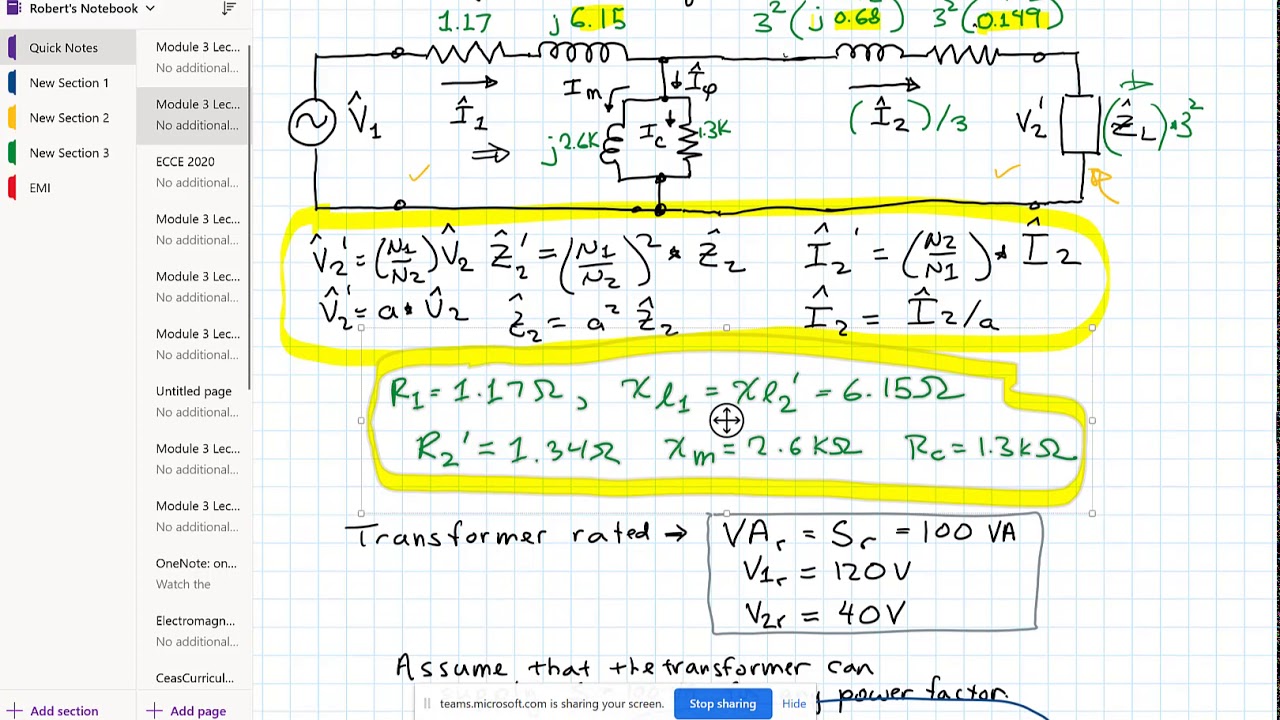 Robert's Notebook
Quick Notes
New Section 1
New Section 2
New Section 3
EMI
Add section
Module 3 Lec...
No additional...
Module 3 Lec...
No additional...
ECCE 2020
No additional...
Module 3 Lec...
No additional...
Module 3 Lec...
No additional...
Module 3 Lec...
No additional...
Untitled page
No additional...
Module 3 Lec...
No additional...
Module 3 Lec...
No additional...
OneNote: on...
Watch the
Electromagn...
No additional...
CeasCurricul...
Add page
1.17 j 6.15 3²(j 0.68) 3²(0.149)
V̂1 Î1 Im Îφ (Î2)/3 V2' (ẐL)*3²
j2.6K Ic 1.3K
V̂2' = (N1/N2)V̂2 Ẑ2' = (N1/N2)² * Ẑ2 Î2' = (N2/N1) * Î2
V̂2' = a * V̂2 Ẑ2 = a² Ẑ2 Î2 = Î2/a
R1 = 1.17Ω, xl1 = xl2' = 6.15Ω
R2' = 1.34Ω xm = 2.6 KΩ Rc = 1.3kΩ
Transformer rated → VAr = Sr = 100 VA
V1r = 120V
V2r = 40V
Assume that the transformer can
power factor.
teams.microsoft.com is sharing your screen. Stop sharing Hide